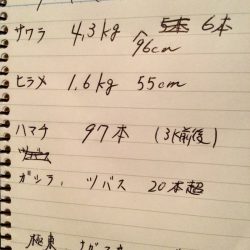 サワラ 4,3kg 5本 6本
96cm
ヒラメ 1.6kg 55cm
ハマチ 97本 (3K前後)
ツバス
ガシラ、ツバス 20本超
極東